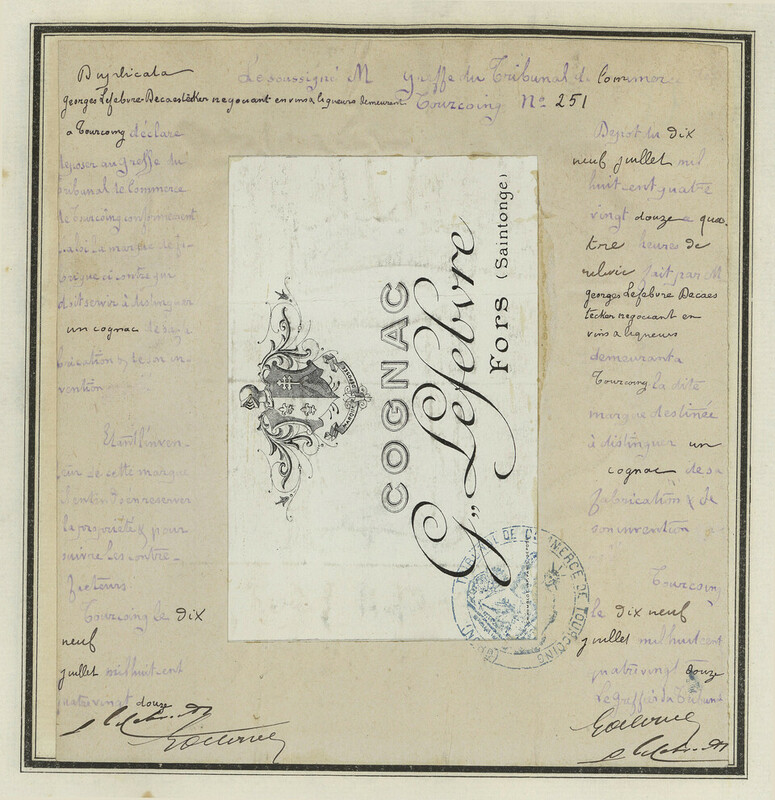 Duplicata
Le soussigné M
georges Lefebvre-Decaestecker negociant en vins & liqueurs demeurant
a Tourcoing déclare
déposer au greffe du
Tribunal de Commerce
de Tourcoing conformément
à la loi la marque de fa-
brique ci contre qui
doit servir à distinguer
un cognac de sa fa-
brication & de son in-
vention
Etant l'inven-
teur de cette marque
il entend en reserver
la propriété & pour
suivre les contre-
facteurs
Tourcoing le dix
neuf
juillet mil huit cent
quatre vingt douze
COGNAC
G. Lefebvre
Fors (Saintonge)
MARQUE DÉPOSÉE
TRIBUNAL DE COMMERCE DE TOURCOING (NORD)
Greffe du Tribunal de Commerce de
Tourcoing No 251
Depot du dix
neuf juillet mil
huit cent quatre
vingt douze a qua-
tre heures de
relevée fait par M
georges Lefebvre Decaes
tecker negociant en
vins & liqueurs
demeurant a
Tourcoing la dite
marque destinée
à distinguer un
cognac de sa
fabrication & de
son invention
Tourcoing
le dix neuf
juillet mil huit cent
quatre vingt douze
Le greffier du Tribunal